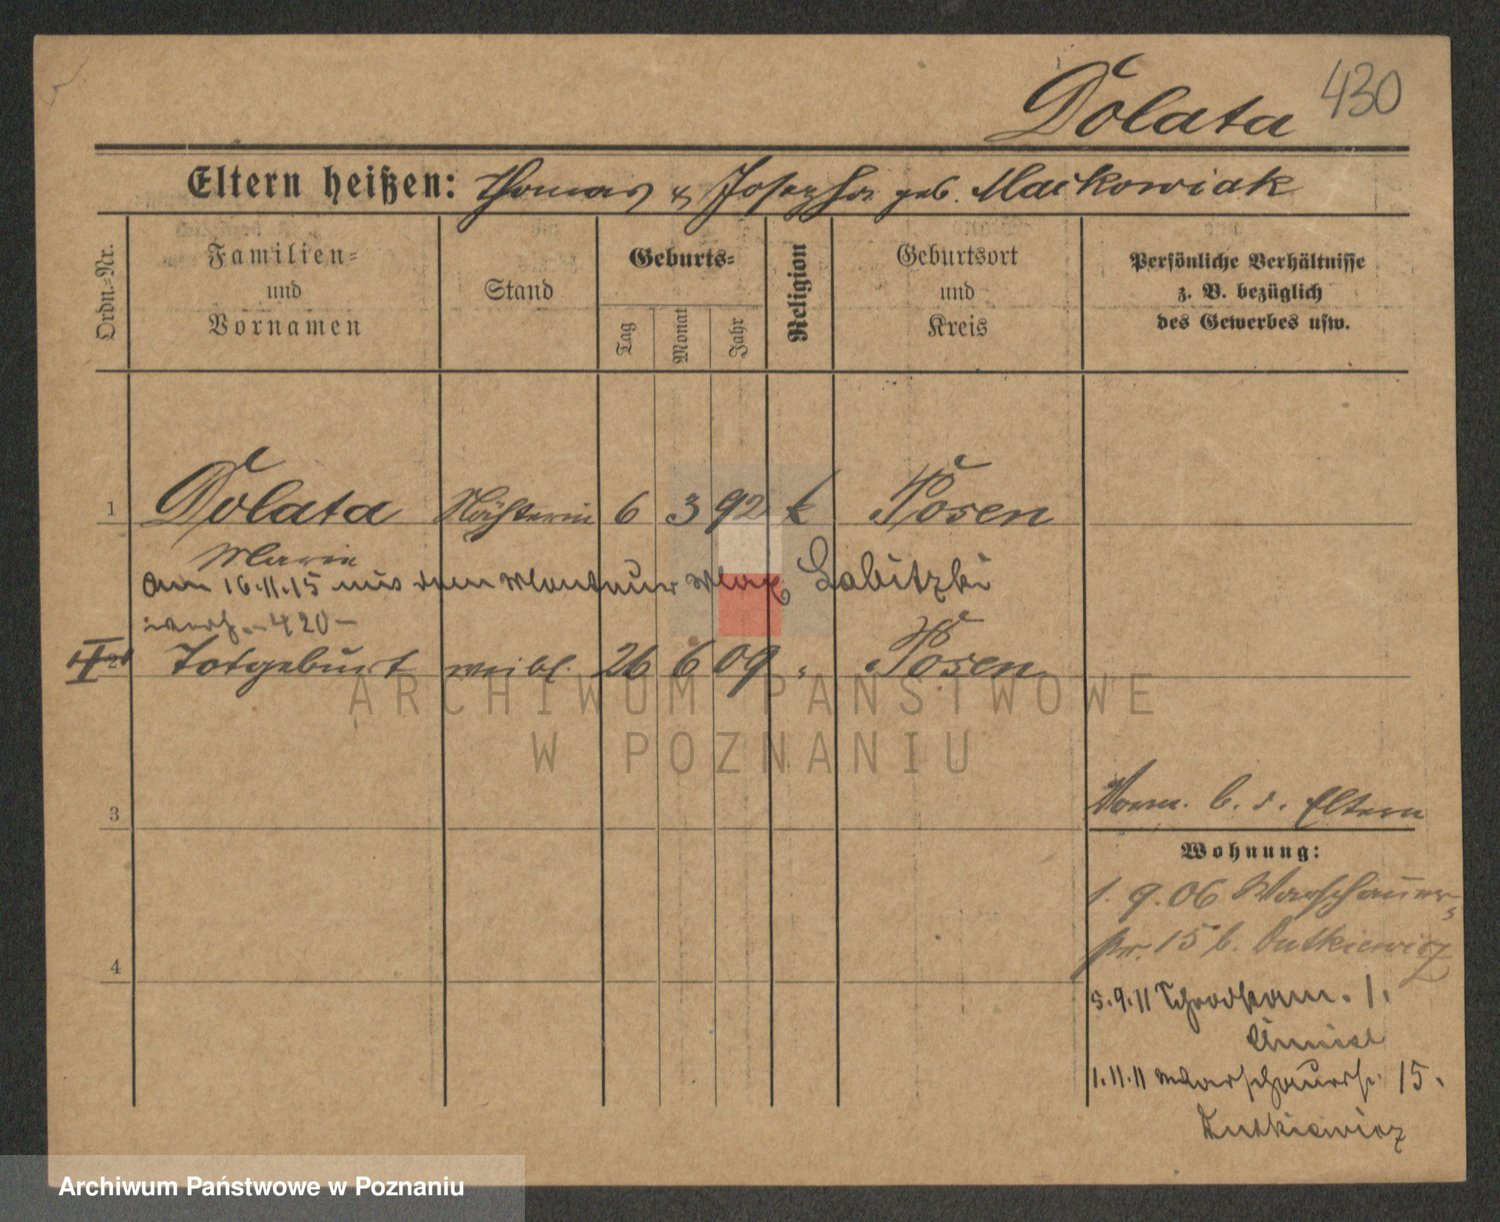 Dolata 430
Eltern heißen: Thomas & Josepha geb. Mackowiak
Ordn.-Nr.
Familien-
und
Vornamen
Stand
Geburts-
Tag
Monat
Jahr
Religion
Geburtsort
und
Kreis
Persönliche Verhältnisse
z. B. bezüglich
des Gewerbes usw.
1 Dolata Nähterin 6 3 92 k Posen
Marie
am 16.11.15 mit dem Monteur Max Labitzki
verh. - 420 -
2 Totgeburt weibl. 26 6 09 " Posen
ARCHIWUM PAŃSTWOWE
W POZNANIU
3
Vorm. b. d. Eltern
Wohnung:
1.9.06 Warschauer-
str. 15 b. Dutkiewicz
4
5.9.11 1.
1.11.11 Warschauerstr. 15.
Dutkiewicz
Archiwum Państwowe w Poznaniu